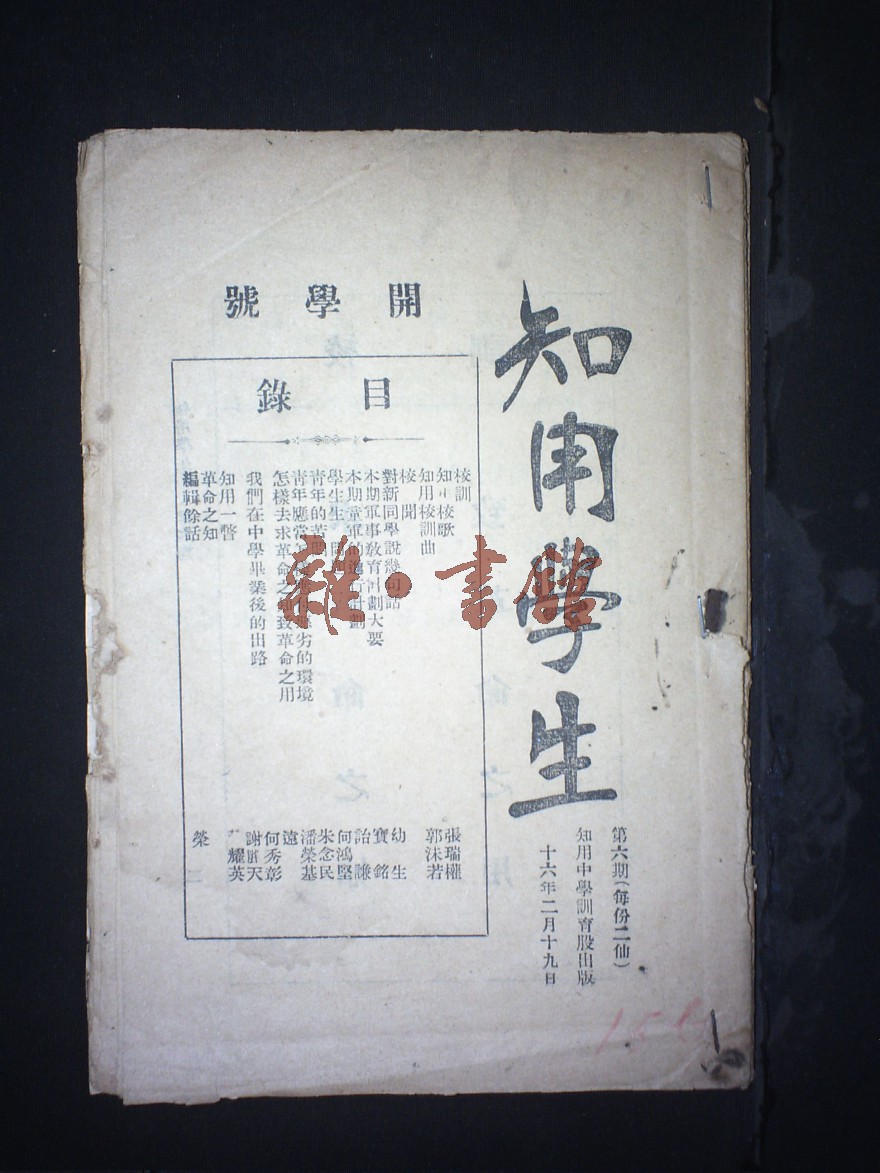 知用學生
第六期(每份二仙)
知用中學訓育股出版
十六年二月十九日
開學號
目錄
校訓
知用校歌
知用校訓曲
校聞
對新同學說幾句話
本期軍事教育計劃大要
本期童軍的進行計劃
學生生
青年的苦悶
青年應當 劣的環境
怎樣去求革命之知致革命之用
我們在中學畢業後的出路
知用一瞥
革命之知
編輯餘話
張瑞權
郭沫若
幼生
寶銘
詒謙
何鴻堅
朱念民
潘榮基
遠
何秀彰
謝 天
耀英
榮
雜·書館